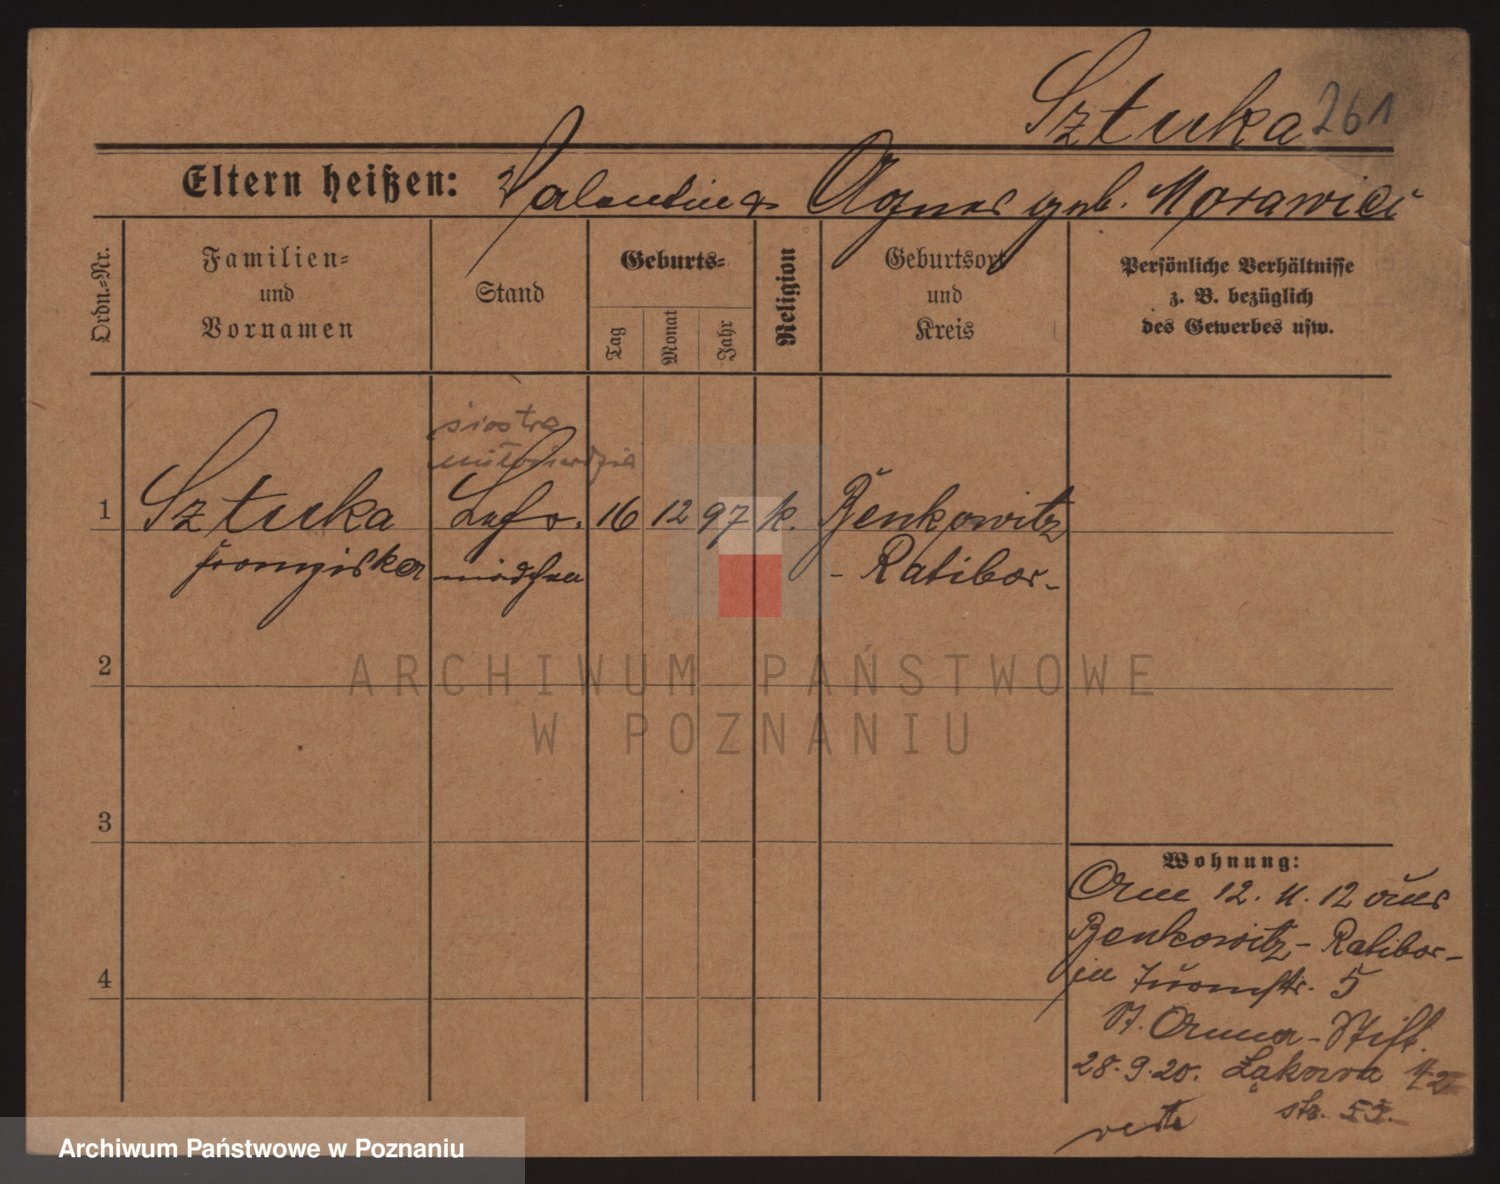 Sztuka 261
Eltern heißen: Valentin & Agnes geb. Morawici
Ordn.-Nr.
Familien-
und
Vornamen
Stand
Geburts-
Tag
Monat
Jahr
Religion
Geburtsort
und
Kreis
Persönliche Verhältnisse
z. B. bezüglich
des Gewerbes usw.
siostra
miłosierdzia
1 Sztuka Lehr- 16 12 97 k. Benkowitz
Franziska mädchen - Ratibor -
2
3
4
Wohnung:
Am 12. 11. 12 aus
Benkowitz - Ratibor -
in Turmstr. 5
St. Anna - Stift.
28.9.20. Łąkowa
str. 53.
ARCHIWUM PAŃSTWOWE
W POZNANIU
Archiwum Państwowe w Poznaniu